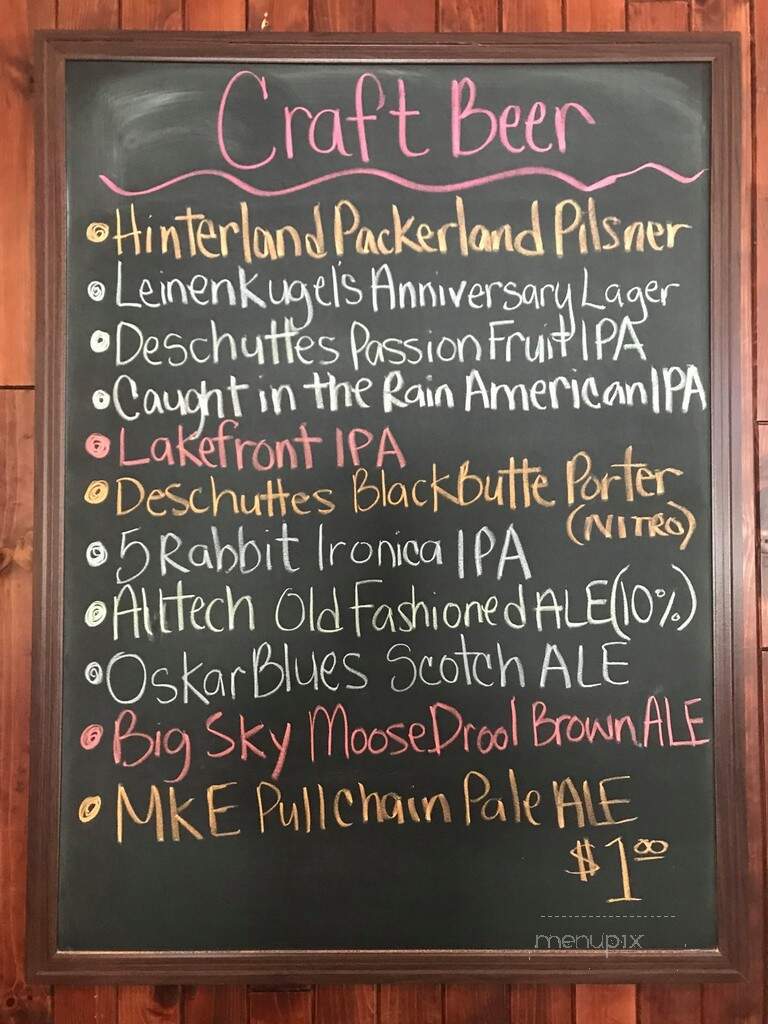 Craft Beer
Hinterland Packerland Pilsner
Leinenkugel's Anniversary Lager
Deschuttes Passion Fruit IPA
Caught in the Rain American IPA
Lakefront IPA
Deschuttes Black Butte Porter
(NITRO)
5 Rabbit Ironica IPA
Alltech Old Fashioned ALE (10%)
Oskar Blues Scotch ALE
Big Sky Moose Drool Brown ALE
MKE Pull Chain Pale ALE
$1.00
menupix